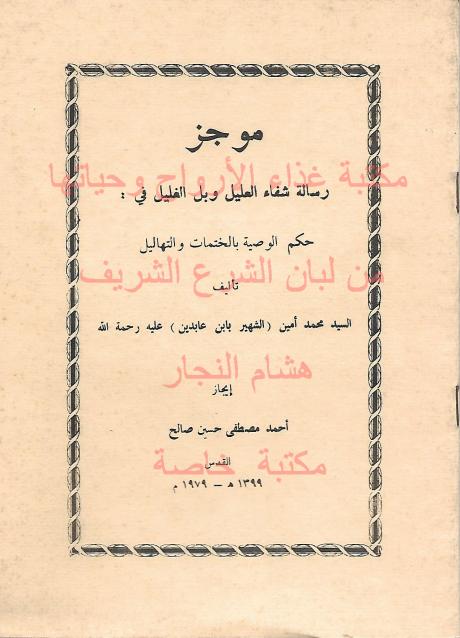 موجز
مكتبة غذاء الأرواح وحياتها
رسالة شفاء العليل وبل الغليل في :
حكم الوصية بالختمات والتهاليل
من لبان الشرع الشريف
تأليف
السيد محمد أمين (الشهير بابن عابدين) عليه رحمة الله
هشام النجار
إيجاز
أحمد مصطفى حسين صالح
مكتبة خاصة
القدس
١٣٩٩ هـ - ١٩٧٩ م